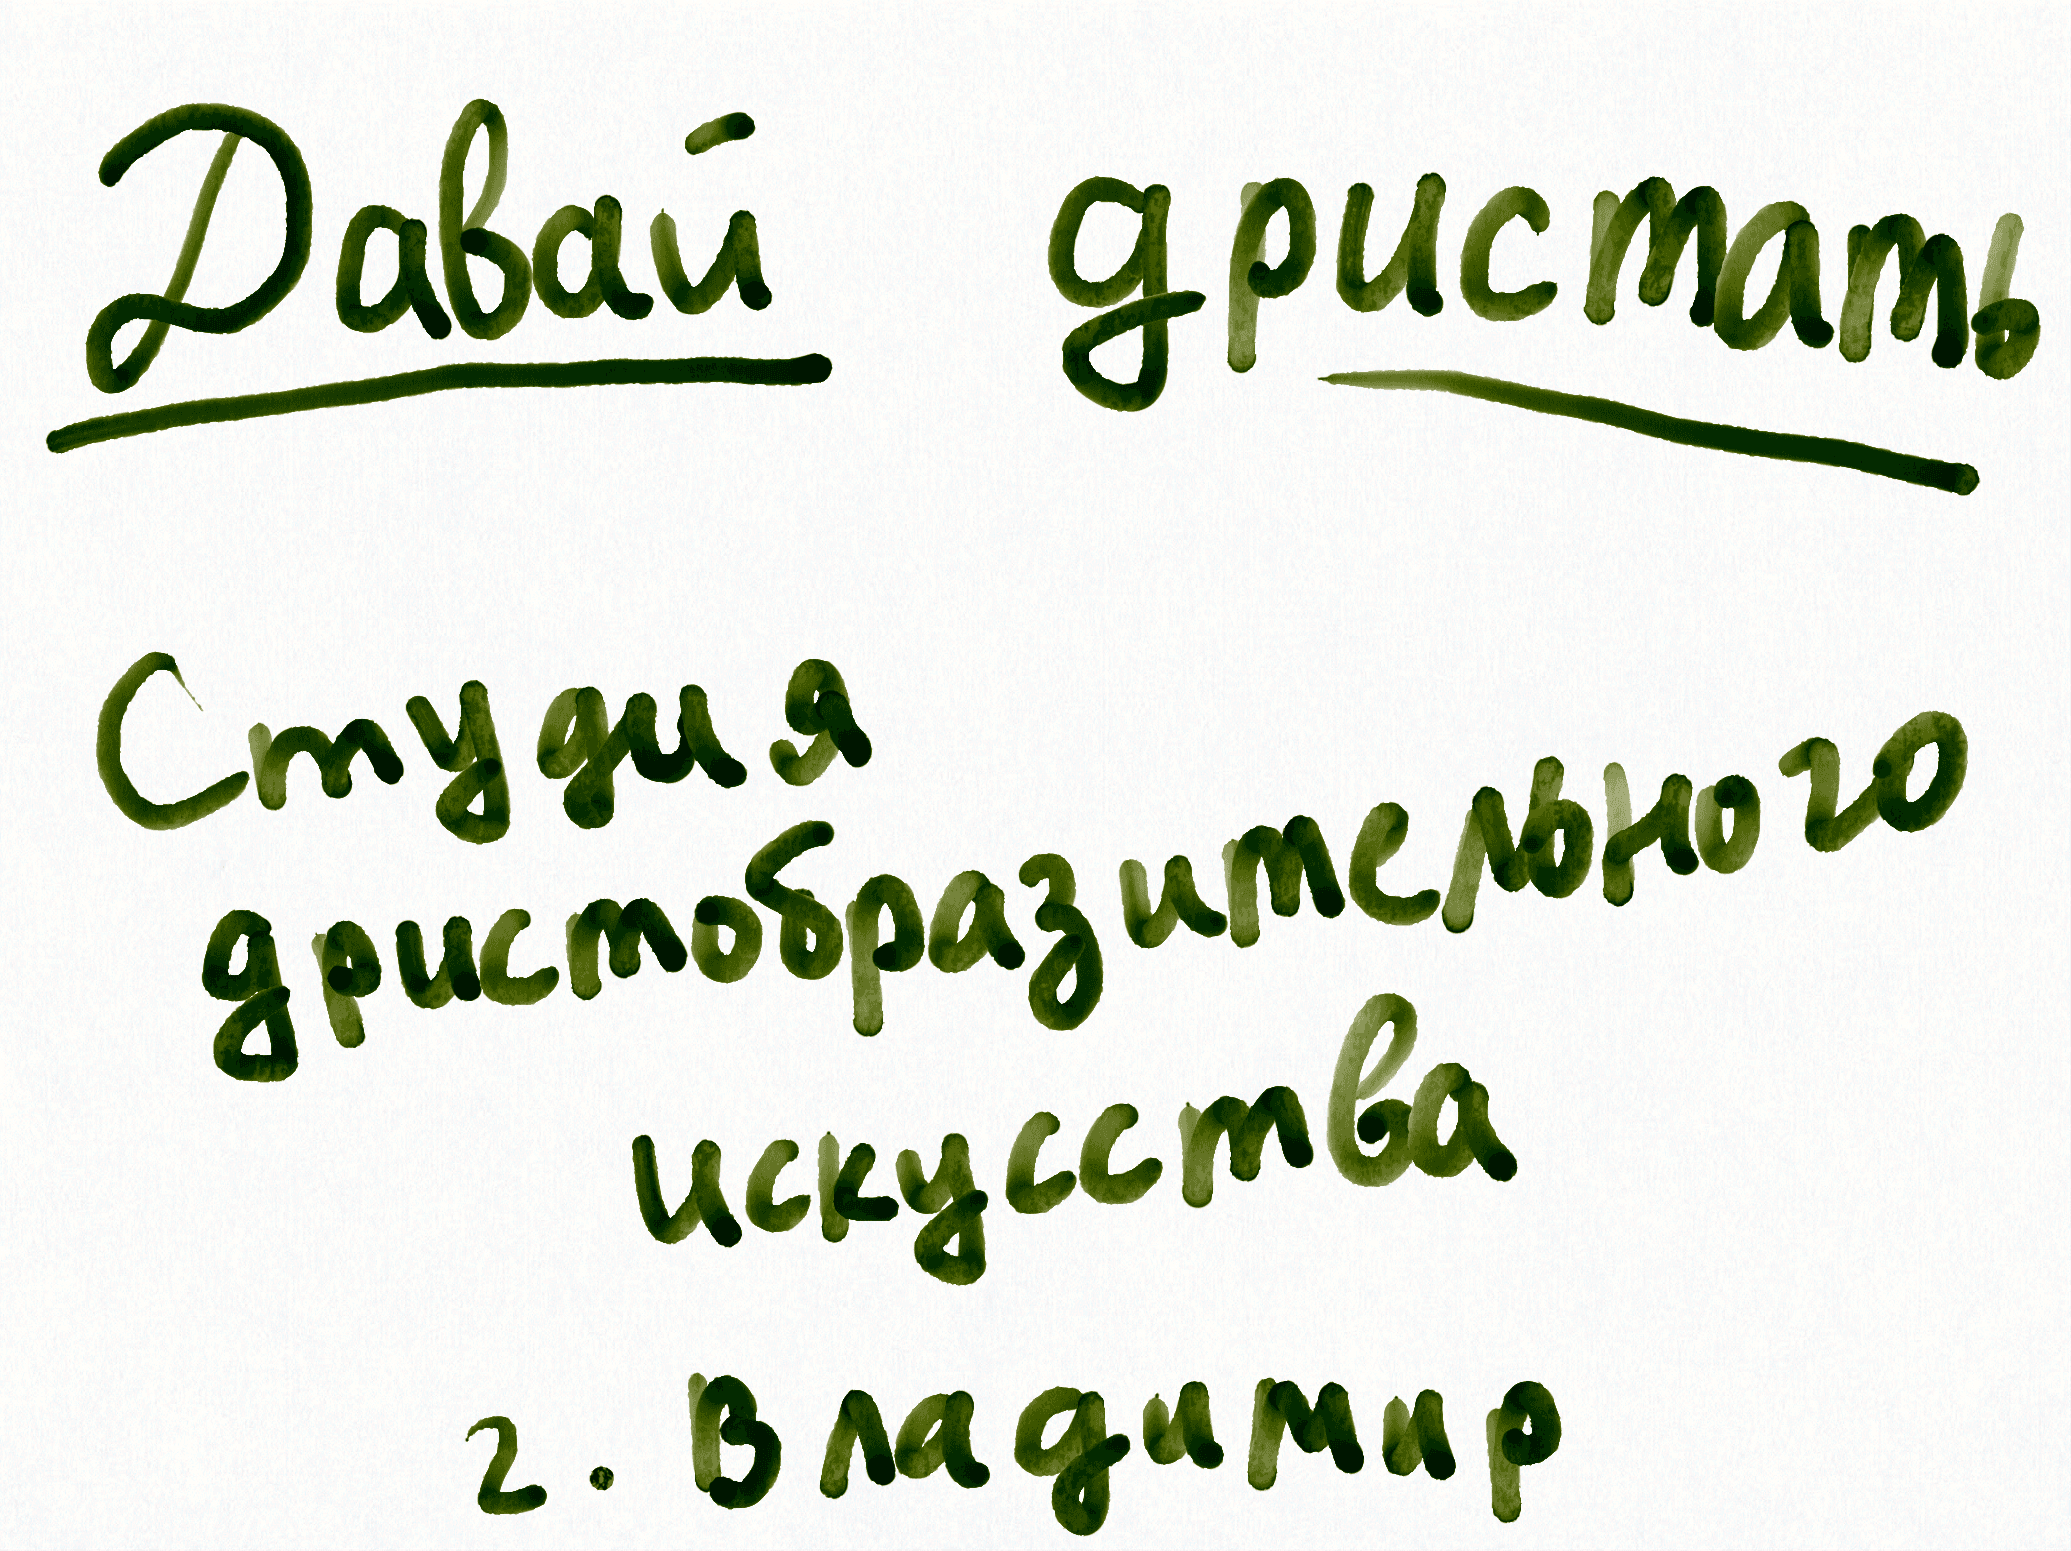 Давай дристать
Студия
дристобразительного
искусства
г. Владимир